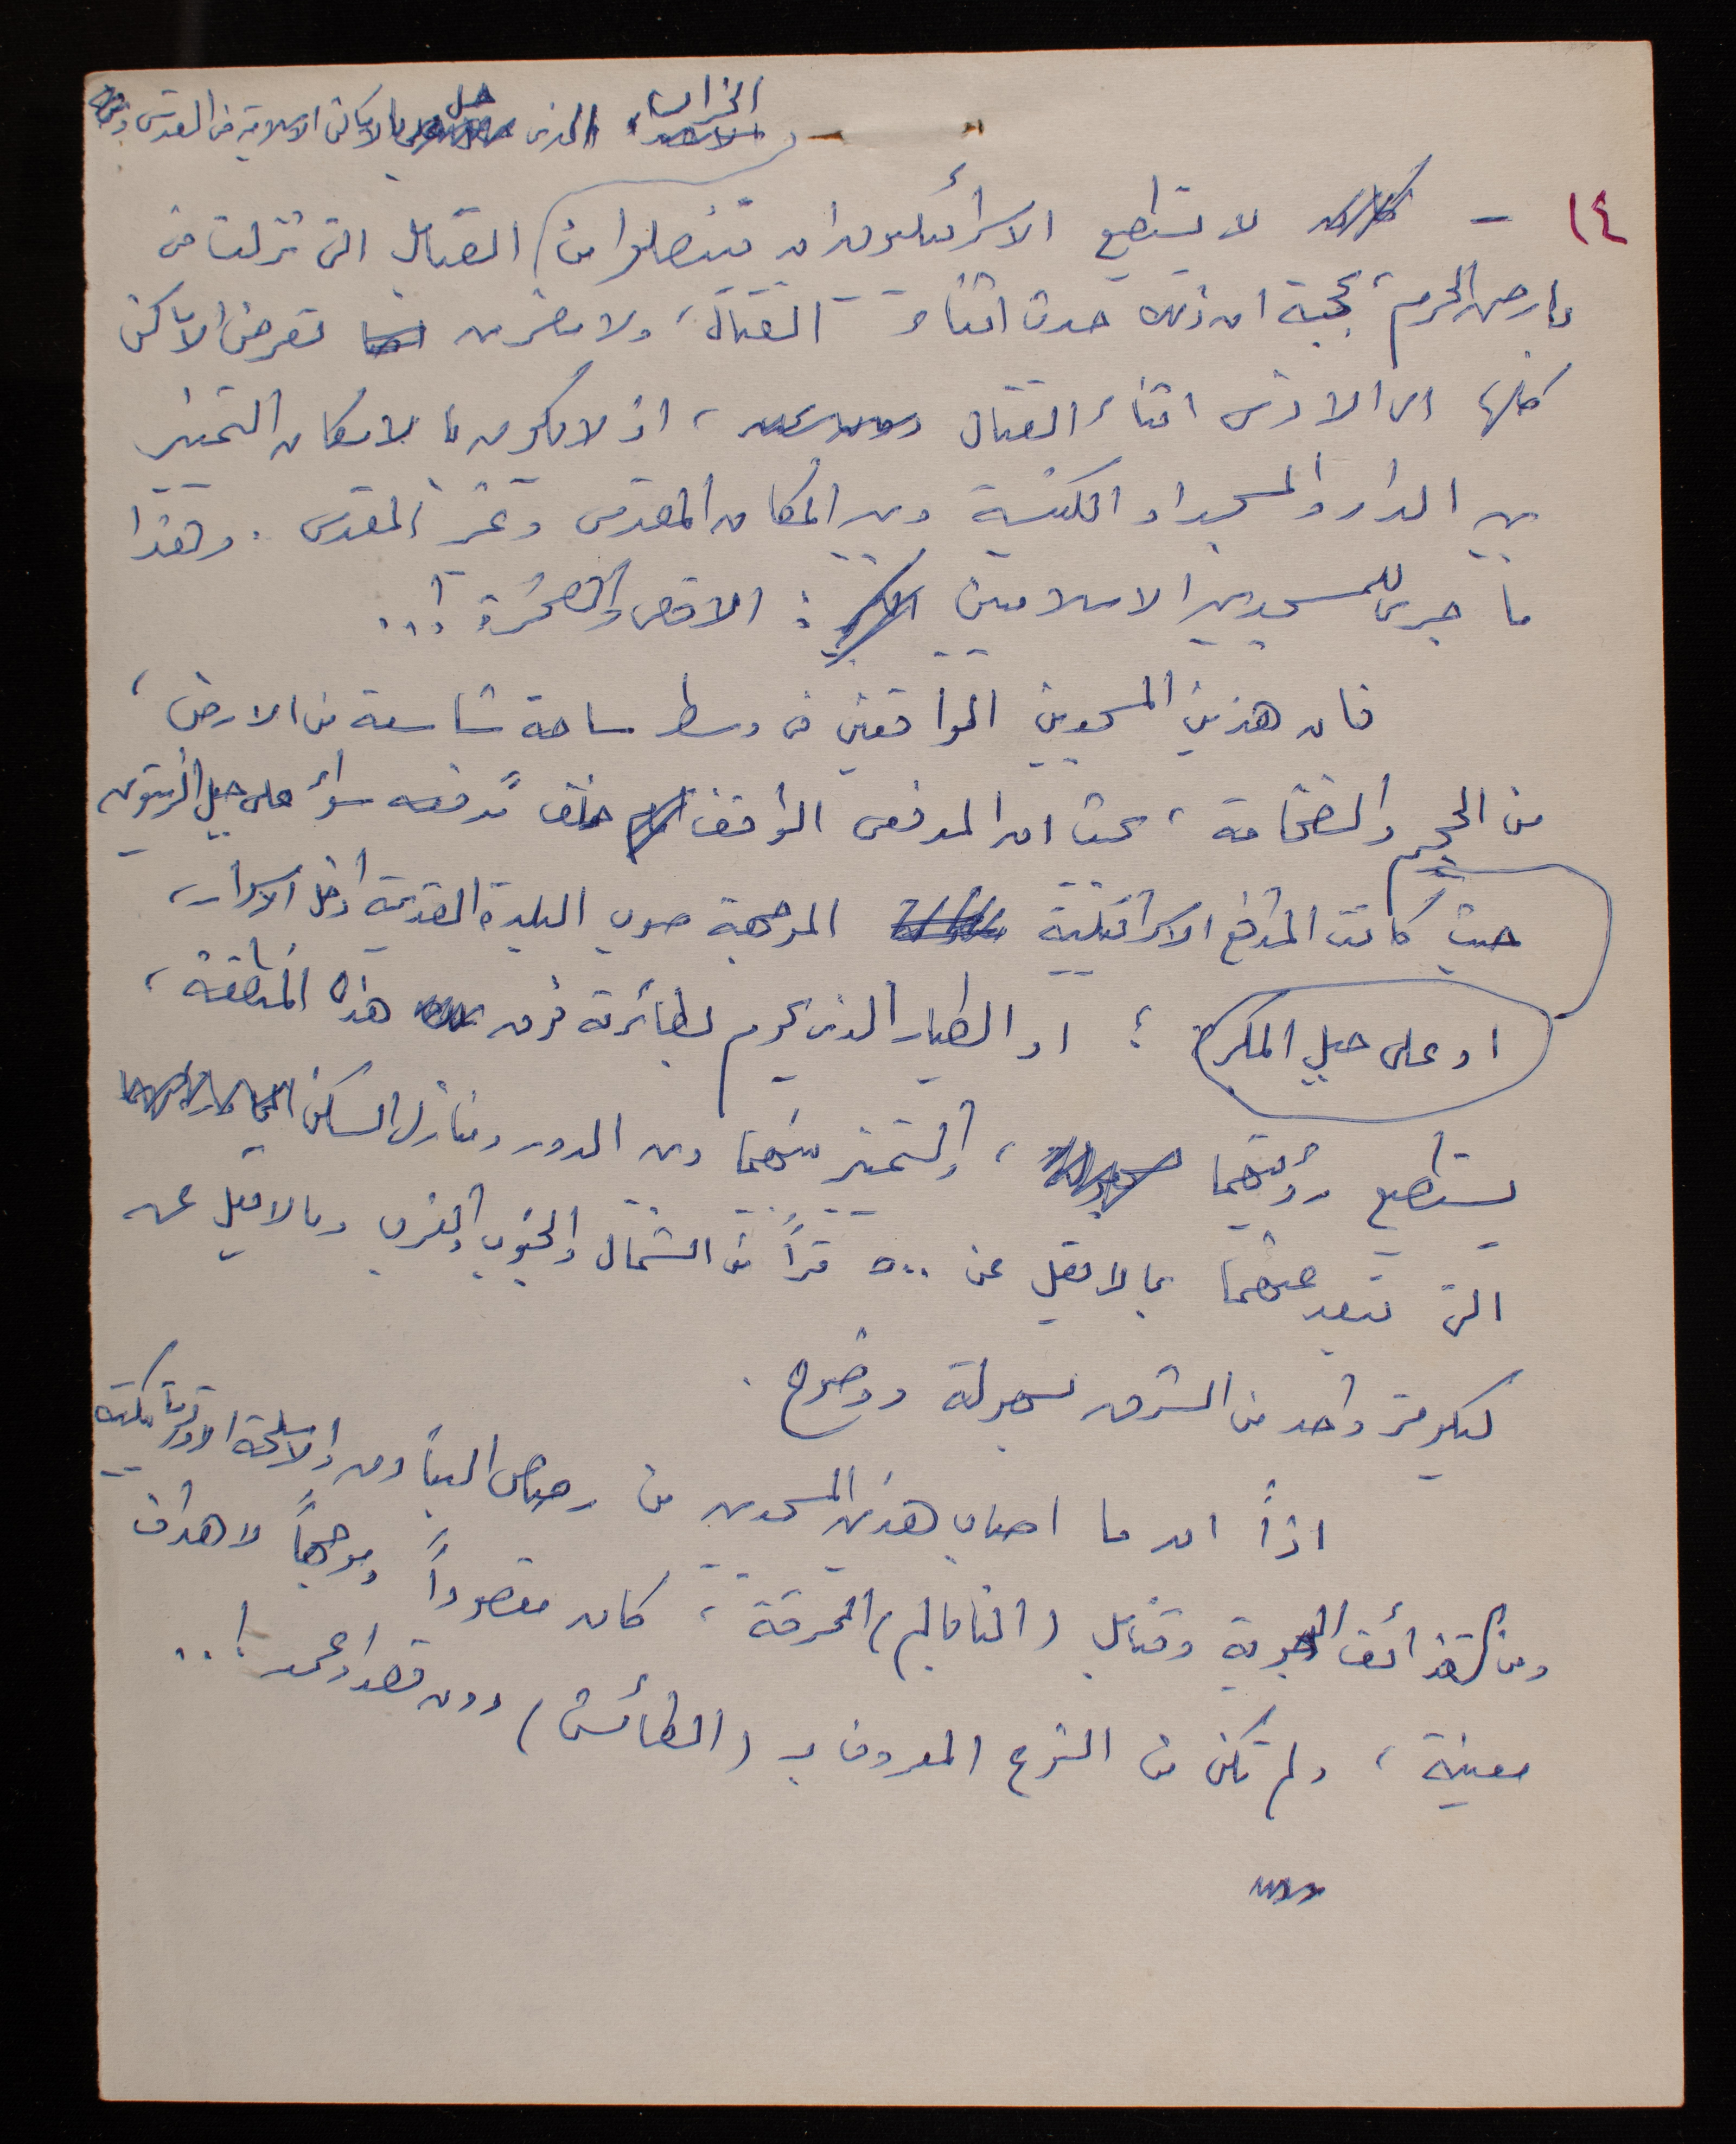 الخراب الذي حل بالاماكن الاسلامية في القدس
١٤ - لا يستطيع الاسرائيليون ان يتنصلوا من القنابل التي نزلت في
ارض الحرم، بحجة ان ذلك حدث اثناء القتال، ولا تعرض الاماكن
كلها الى الاذى اثناء القتال، اذ لا يكون بالامكان التمييز
بين الدار والمسجد او الكنيسة وبين المكان المقدس وغير المقدس. وهذا
ما جرى للمسجدين الاسلاميين: الاقصى والصخرة!...
فان هذين المسجدين الواقعين في وسط ساحة شاسعة من الارض،
من الحجم والضخامة، بحيث ان المدفعي الواقف خلف مدفعه سواء على جبل الزيتون
حيث كانت المدافع الاسرائيلية الموجهة صوب البلدة القديمة داخل الاسوار،
او على جبل المكبر؛ او الطيار الذي يحوم بطائرته فوق هذه المنطقة،
يستطيع رؤيتهما، والتمييز بينهما وبين الدور ومنازل السكن
التي تبعد عنهما بما لا يقل عن ٥٠٠ مترا من الشمال والجنوب والغرب وما لا يقل عن
كيلومتر واحد من الشرق بسهولة ووضوح.
اذاً ان ما اصاب هذين المسجدين من رصاص البنادق والاسلحة الاوتوماتيكية
ومن القذائف الجوية وقنابل (النابالم) المحرقة، كان مقصوداً وموجهاً لاهداف
معينة، ولم تكن من النوع المعروف بـ (الطائش) دون قصد او عمد!..